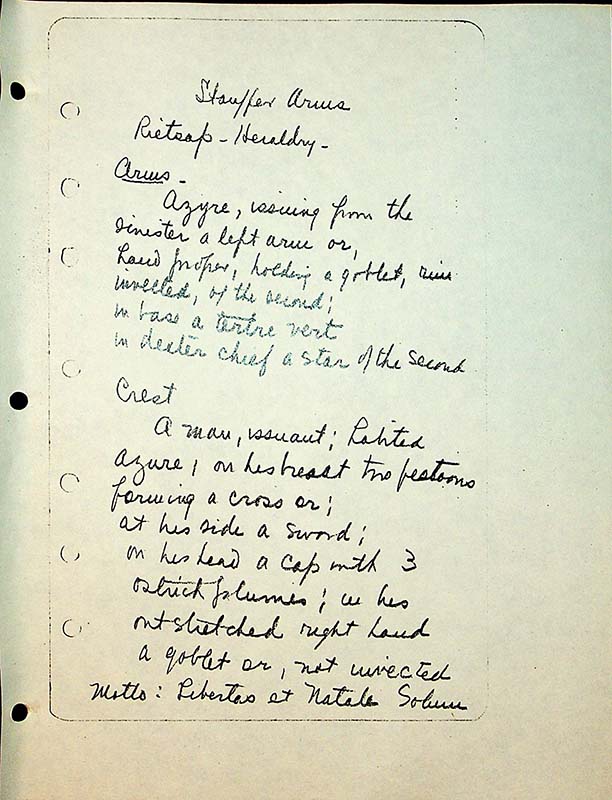 Stauffer Arms
Rietsap - Heraldry -
Arms -
Azyre, issuing from the
sinister a left arm or,
hand proper, holding a goblet, rim
invected, of the second;
in base a tertre vert
in dexter chief a star of the second
Crest
A man, issuant; habited
azure, on his breast two festoons
forming a cross or;
at his side a sword;
on his head a cap with 3
ostrich plumes; in his
outstretched right hand
a goblet or, not invected
Motto: Libertas et Natale Solum